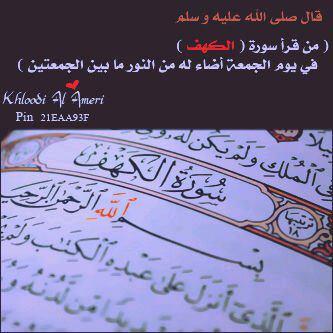 قال صلى الله عليه و سلم
( من قرأ سورة ( الكهف )
في يوم الجمعة أضاء له من النور ما بين الجمعتين )
Khloodi Al Ameri
Pin 21EAA93F
الْمُلْكِ وَلَمْ يَكُن لَّهُ وَلِيٌّ
سُورَةُ الْكَهْفِ
ترتيبها ١٨
بِسْمِ اللَّهِ الرَّحْمَٰنِ الرَّحِيمِ
الَّذِي أَنزَلَ عَلَىٰ عَبْدِهِ الْكِتَابَ وَلَمْ
مِّن لَّدُنْهُ